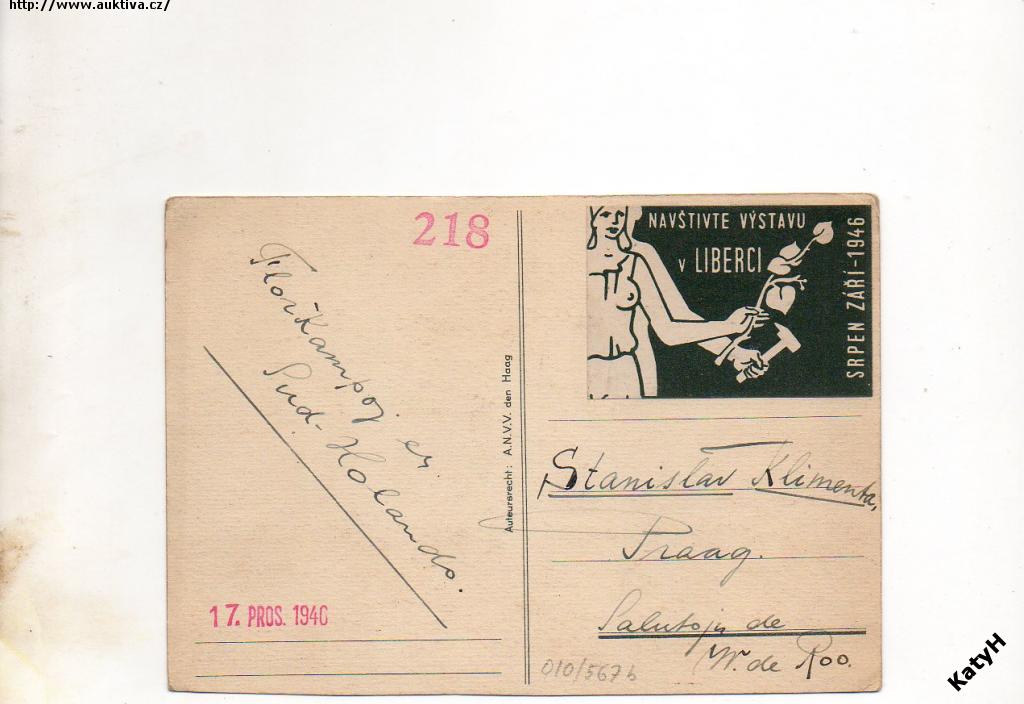 http://www.auktiva.cz/
218
Florkampoj en
Sud-Holando.
17. PROS. 1946
Auteursrecht: A.N.V.V. den Haag
NAVŠTIVTE VÝSTAVU
V LIBERCI
SRPEN ZÁŘÍ-1946
Stanislav Klimenta,
Praag.
Salutojn de
W. de Roo.
010/567b
KatyH